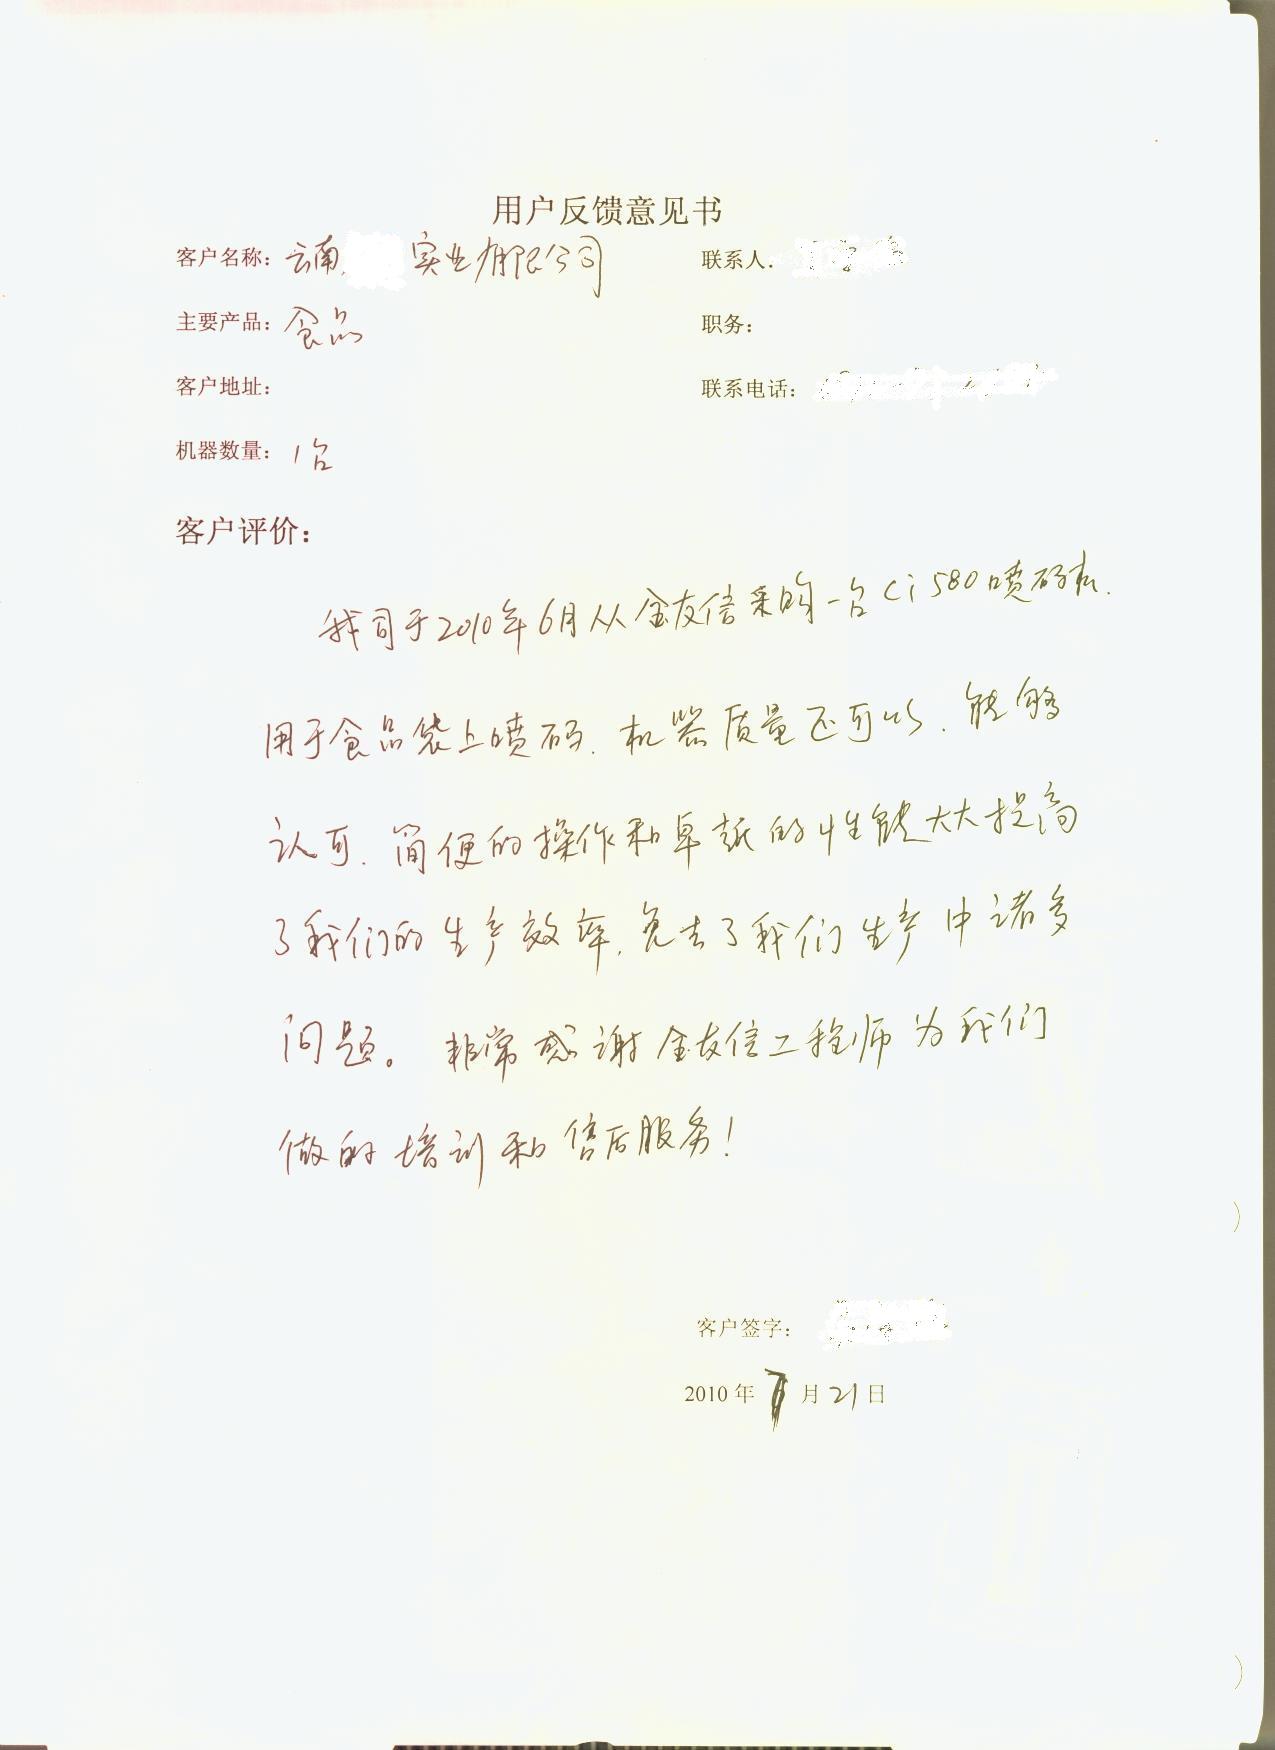 用户反馈意见书
客户名称：云南 实业有限公司 联系人：
主要产品：食品 职务：
客户地址： 联系电话：
机器数量：1台
客户评价：
我司于2010年6月从金友信采购一台Ci580喷码机.
用于食品袋上喷码.机器质量还可以.能够
认可.简便的操作和卓越的性能大大提高
了我们的生产效率,免去了我们生产中诸多
问题。非常感谢金友信工程师为我们
做的培训和售后服务！
客户签字：
2010年7月21日